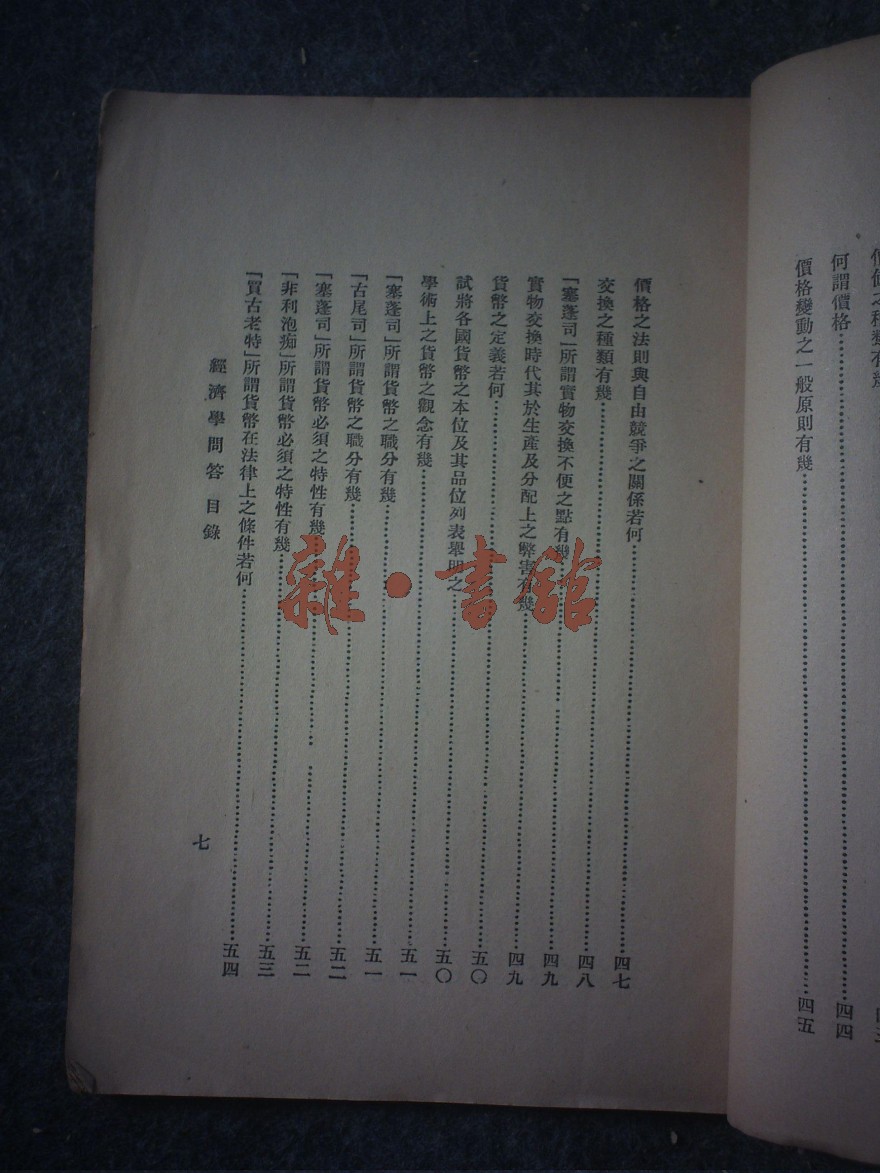 何謂價格……四四
價格變動之一般原則有幾……四五
價格之法則與自由競爭之關係若何……四七
交換之種類有幾……四八
「塞蓬司」所謂實物交換不便之點有幾……四九
實物交換時代其於生產及分配上之弊害有幾……四九
貨幣之定義若何……五〇
試將各國貨幣之本位及其品位列表舉明之……五〇
學術上之貨幣之觀念有幾……五一
「塞蓬司」所謂貨幣之職分有幾……五一
「古尾司」所謂貨幣之職分有幾……五二
「塞蓬司」所謂貨幣必須之特性有幾……五二
「非利泡痴」所謂貨幣必須之特性有幾……五三
「買古老特」所謂貨幣在法律上之條件若何……五四
經濟學問答 目錄
七
雜·書館